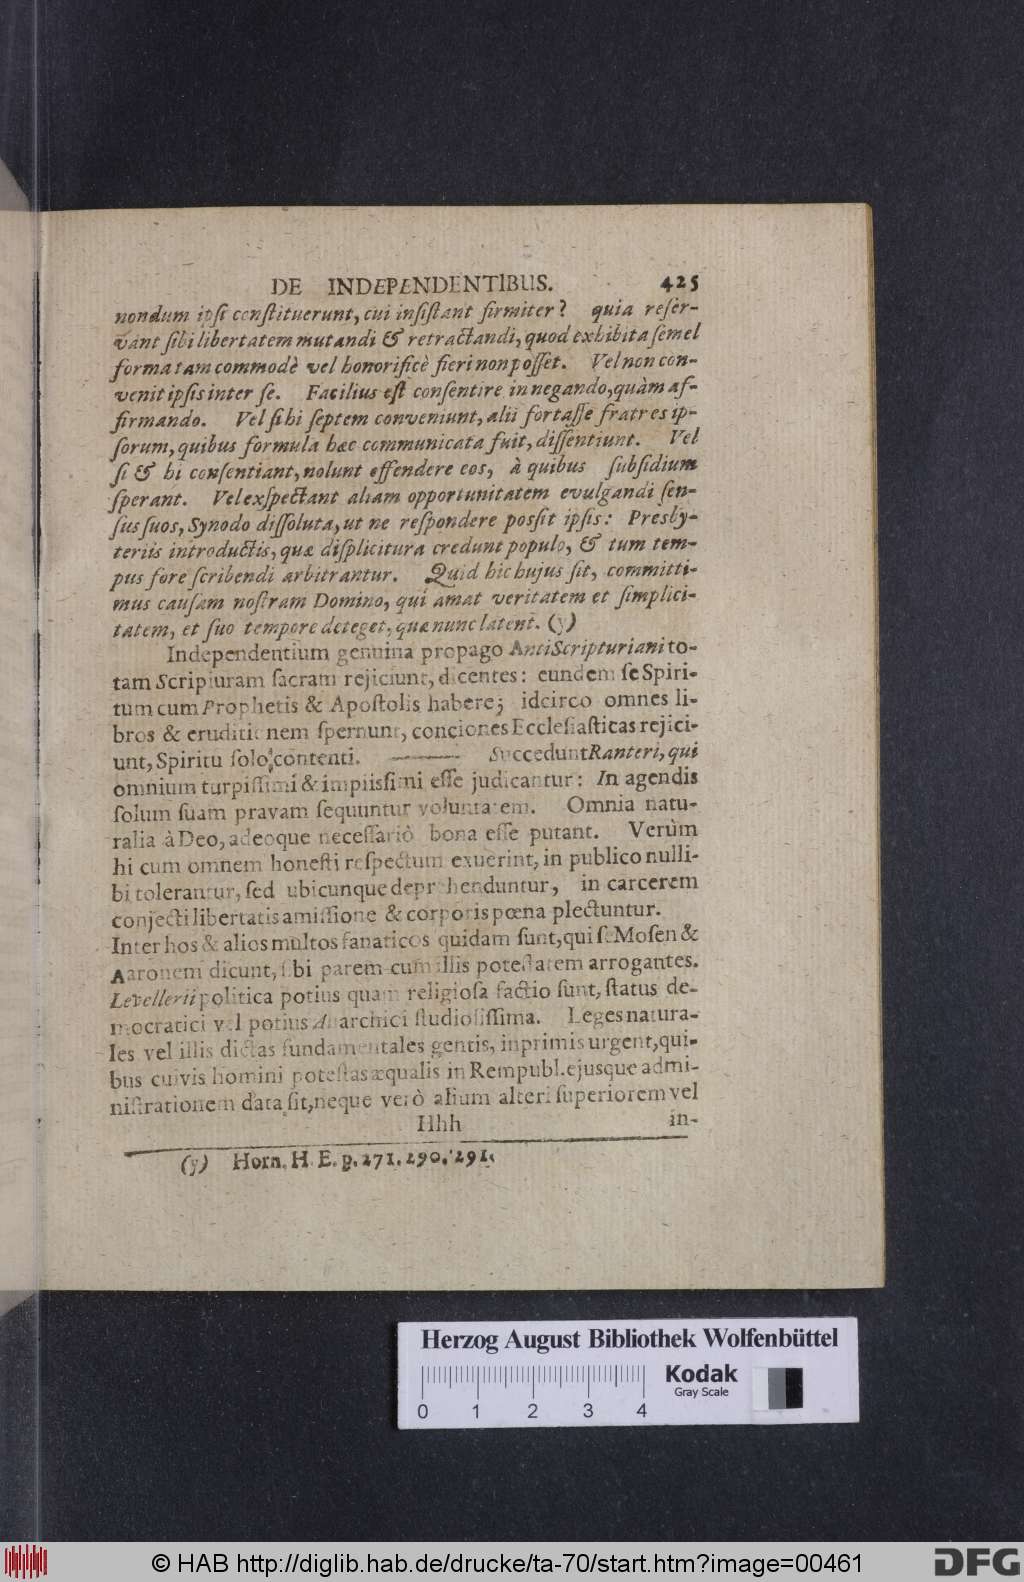 DE INDEPENDENTIBUS. 425
nondum ipſi conſtituerunt, cui inſiſtant firmiter? quia reſer-
vant ſibi libertatem mutandi & retractandi, quod exhibita ſemel
forma tam commodè vel honorificè fieri non poſſet. Vel non con-
venit ipſis inter ſe. Facilius eſt conſentire in negando, quàm af-
firmando. Vel ſi hi ſeptem conveniunt, alii fortaſſe fratres ip-
ſorum, quibus formula hæc communicata fuit, diſſentiunt. Vel
ſi & hi conſentiant, nolunt offendere eos, à quibus ſubſidium
ſperant. Vel exſpectant aliam opportunitatem evulgandi ſen-
ſus ſuos, Synodo diſſoluta, ut ne reſpondere poſſit ipſis: Presby-
teriis introductis, quæ diſplicitura credunt populo, & tum tem-
pus fore ſcribendi arbitrantur. Quid hic hujus ſit, committi-
mus cauſam noſtram Domino, qui amat veritatem et ſimplici-
tatem, et ſuo tempore deteget, quæ nunc latent. (y)
Independentium genuina propago AntiScripturiani to-
tam Scripturam ſacram rejiciunt, dicentes: eundem ſe Spiri-
tum cum Prophetis & Apoſtolis habere; idcirco omnes li-
bros & eruditionem ſpernunt, conciones Eccleſiaſticas rejici-
unt, Spiritu ſolo contenti. ——— Succedunt Ranteri, qui
omnium turpiſſimi & impiisſimi eſſe judicantur: In agendis
ſolum ſuam pravam ſequuntur voluntatem. Omnia natu-
ralia à Deo, adeoque neceſſariò bona eſſe putant. Verùm
hi cum omnem honeſti reſpectum exuerint, in publico nulli-
bi tolerantur, ſed ubicunque deprehenduntur, in carcerem
conjecti libertatis amiſſione & corporis pœna plectuntur.
Inter hos & alios multos fanaticos quidam ſunt, qui ſe Moſen &
Aaronem dicunt, ſibi parem cum illis poteſtatem arrogantes.
Levellerii politica potius quam religioſa factio ſunt, ſtatus de-
mocratici vel potius Anarchici ſtudioſiſſima. Leges natura-
les vel illis dictas fundamentales gentis, inprimis urgent, qui-
bus cuivis homini poteſtas æqualis in Rempubl. ejusque admi-
niſtrationem data ſit, neque verò alium alteri ſuperiorem vel
Hhh in-
(y) Horn. H. E. p. 271. 290. 291.
Herzog August Bibliothek Wolfenbüttel
Kodak
Gray Scale
0 1 2 3 4
© HAB http://diglib.hab.de/drucke/ta-70/start.htm?image=00461
DFG